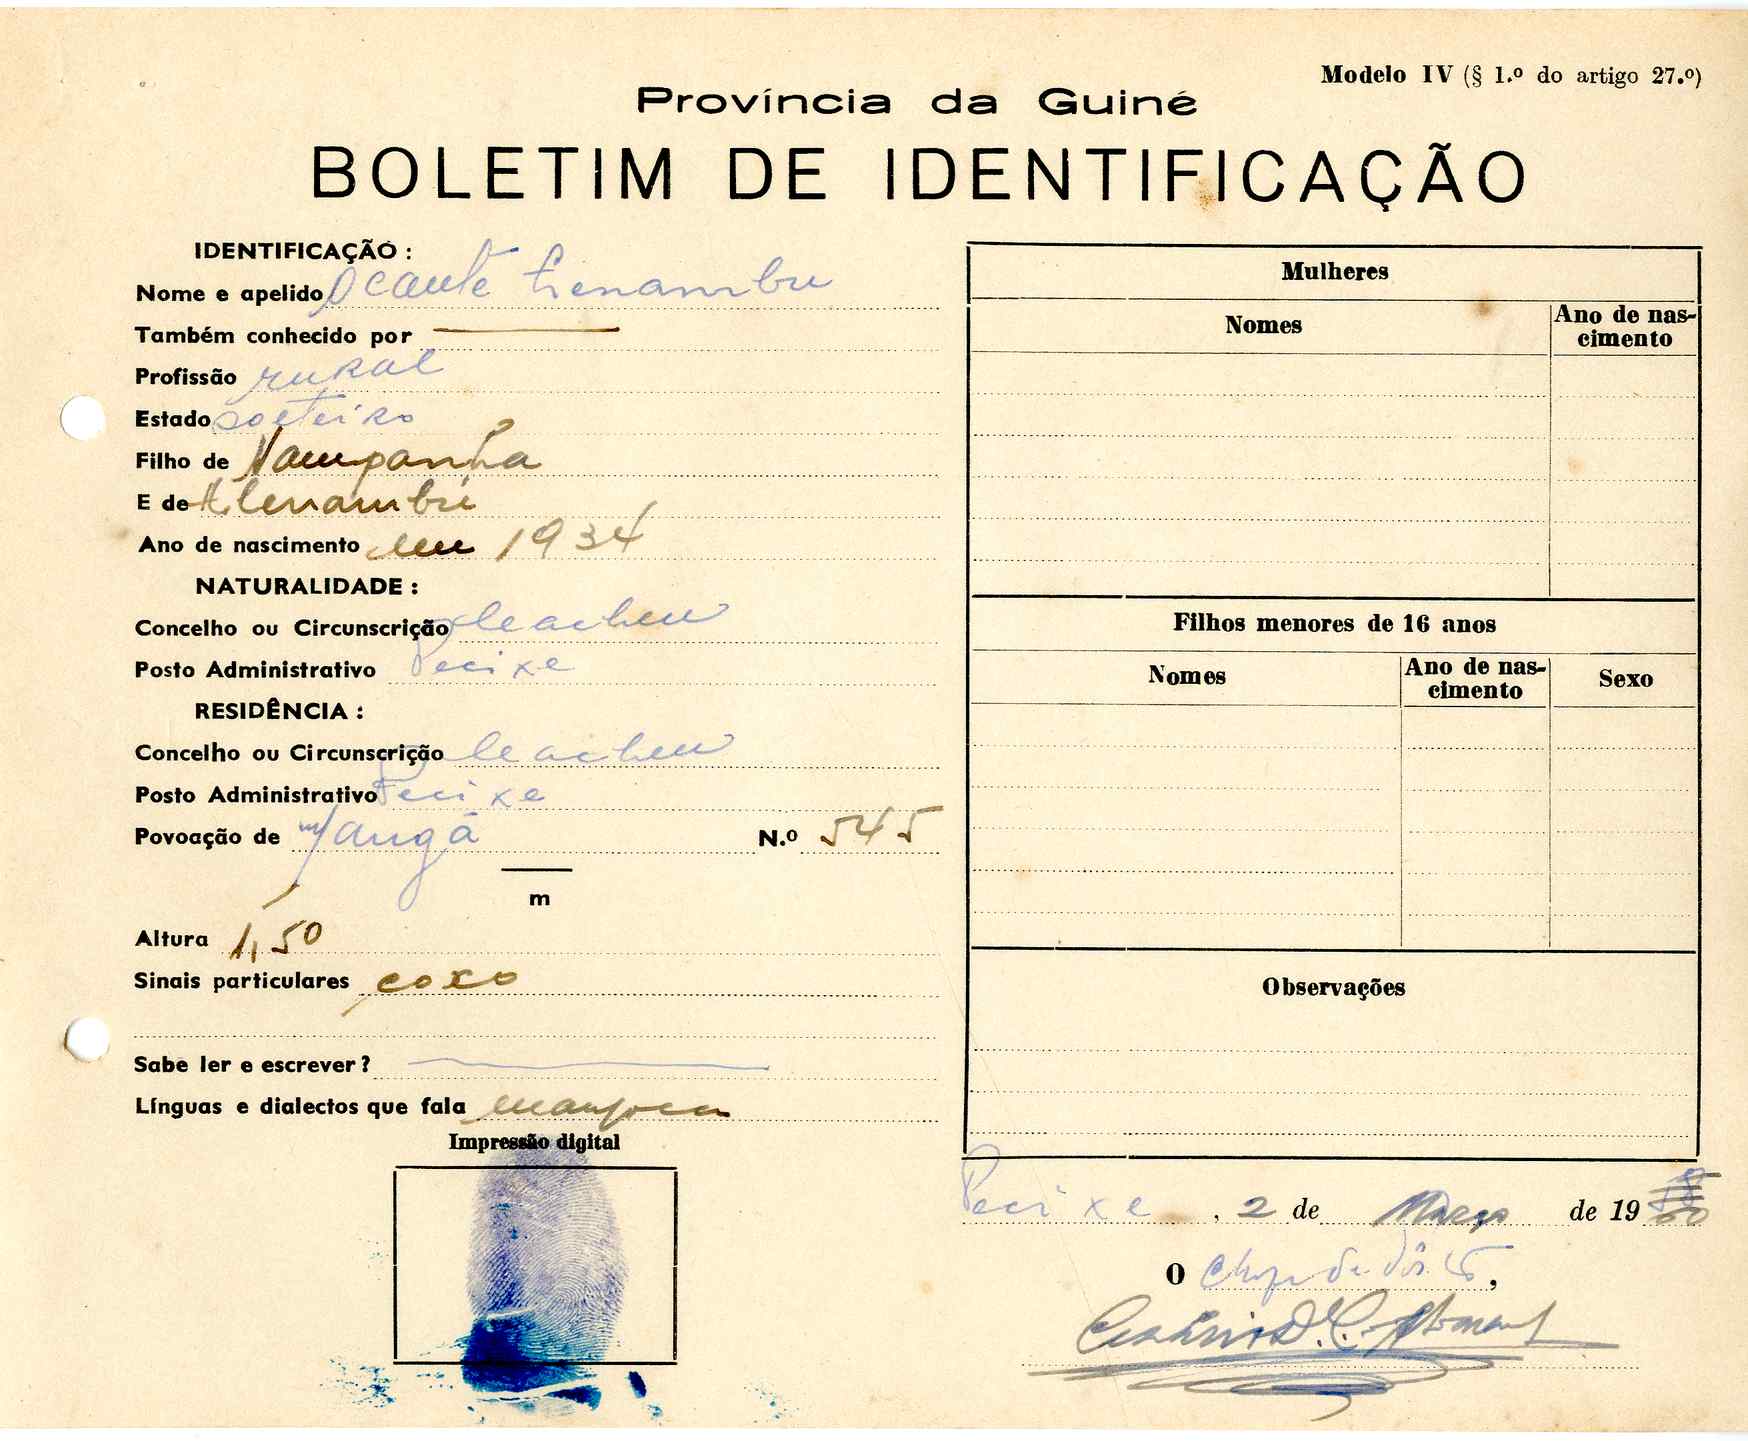 Modelo IV (§ 1.º do artigo 27.º)
Província da Guiné
BOLETIM DE IDENTIFICAÇÃO
IDENTIFICAÇÃO :
Nome e apelido Ocante
Também conhecido por
Profissão rural
Estado solteiro
Filho de Nampanha
E de
Ano de nascimento em 1934
NATURALIDADE :
Concelho ou Circunscrição Cacheu
Posto Administrativo Pecixe
RESIDÊNCIA :
Concelho ou Circunscrição Cacheu
Posto Administrativo Pecixe
Povoação de N.º 545
m
Altura 1,50
Sinais particulares coxo
Sabe ler e escrever ?
Línguas e dialectos que fala
Impressão digital
Mulheres
Nomes Ano de nas-
cimento
Filhos menores de 16 anos
Nomes Ano de nas-
cimento Sexo
Observações
Pecixe, 2 de Março de 19
O Chefe de Pôsto,